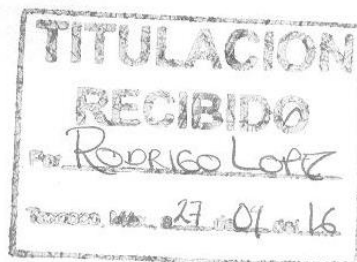 TITULACION
RECIBIDO
Por RODRIGO LOPEZ
a 27 de 09 del 16